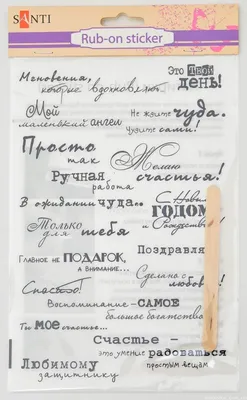 SANTI
Rub-on sticker
Мгновения,
которые вдохновляют
Это Твой
день!
Мой
маленький ангел
Не ждите чуда.
Чудите сами!
Просто
так
Желаю
счастья!
Ручная
работа
В ожидании чуда...
С Новым
ГОДОМ
и Рождеством!
Только
для тебя
Поздравля
Главное не ПОДАРОК,
а внимание...
Сделано с
любовью!
Спасибо!
Воспоминание - САМОЕ
большое богатство
Ты мое счастье...
Счастье -
это умение радоваться
простым вещам
Любимому
защитнику